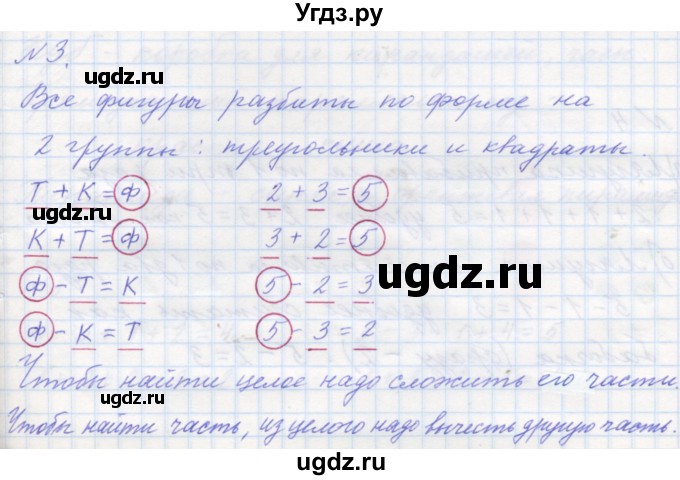 Угадай.ру
№3.
Все фигуры разбиты по форме на
2 группы: треугольники и квадраты.
Т + К = Ф 2 + 3 = 5
К + Т = Ф 3 + 2 = 5
Ф - Т = К 5 - 2 = 3
Ф - К = Т 5 - 3 = 2
Чтобы найти целое надо сложить его части.
Чтобы найти часть, из целого надо вычесть другую часть.
ugdz.ru
ugdz.ru
ugdz.ru
ugdz.ru
ugdz.ru
ugdz.ru